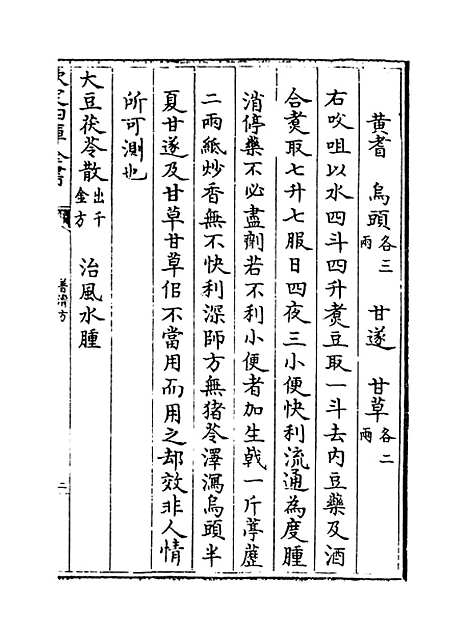 黄耆　烏頭各三兩　甘遂　甘草各二兩
右㕮咀以水四斗四升煮豆取一斗去内豆藥及酒
合煮取七升七服日四夜三小便快利流通為度腫
消停藥不必盡劑若不利小便者加生戟一斤葶藶
二兩紙炒香無不快利深師方無猪苓澤瀉烏頭半
夏甘遂及甘草甘草佀不當用而用之却效非人情
所可測也
大豆茯苓散出千金方　治風水腫
普濟方
二